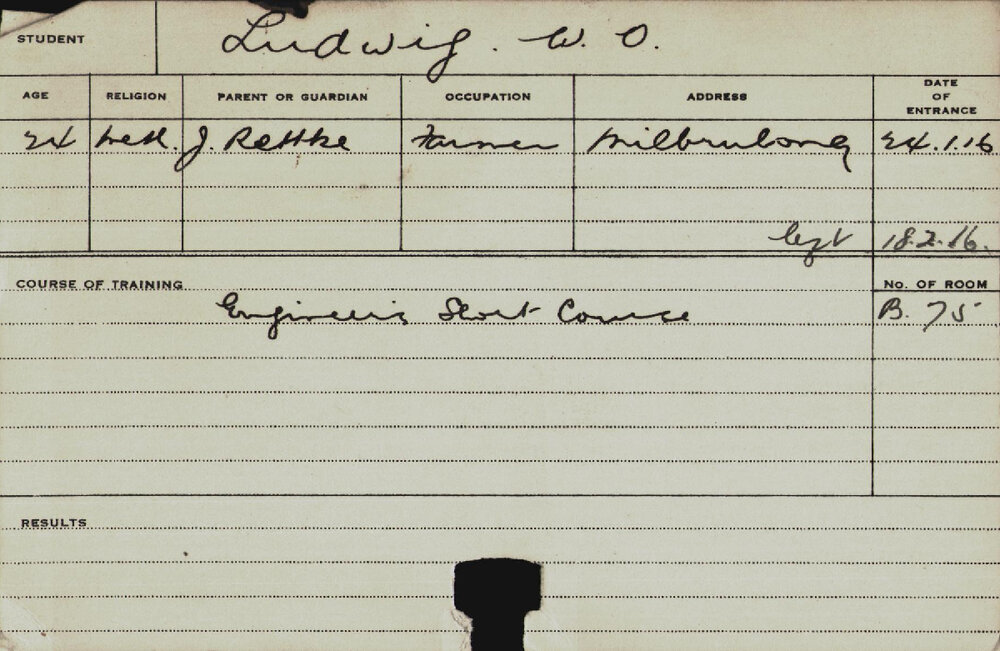 STUDENT Ludwig. W. O.
AGE RELIGION PARENT OR GUARDIAN OCCUPATION ADDRESS DATE OF ENTRANCE
24 Meth. J. Rethke Farmer Wilbrulong 24.1.16
left 18.2.16.
COURSE OF TRAINING No. OF ROOM
Engineers Short Course B. 75
RESULTS